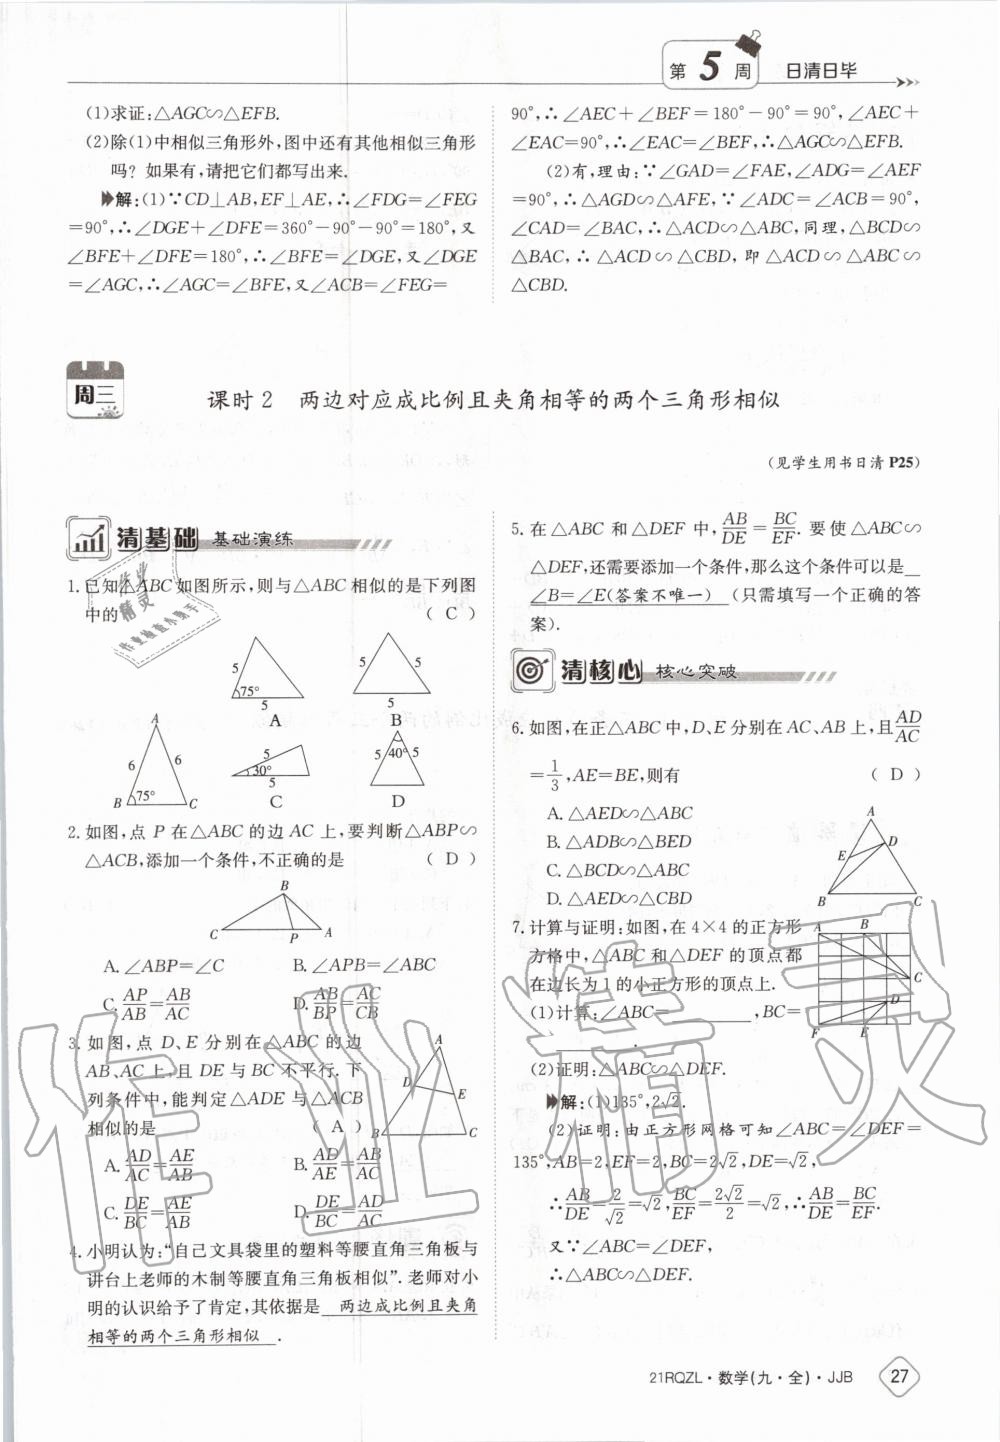 第5周 日清日毕
(1)求证:△AGC∽△EFB.
(2)除(1)中相似三角形外,图中还有其他相似三角形
吗?如果有,请把它们都写出来.
解:(1)∵CD⊥AB,EF⊥AE,∴∠FDG=∠FEG
=90°,∴∠DGE+∠DFE=360°-90°-90°=180°,又
∠BFE+∠DFE=180°,∴∠BFE=∠DGE,又∠DGE
=∠AGC,∴∠AGC=∠BFE,又∠ACB=∠FEG=
90°,∴∠AEC+∠BEF=180°-90°=90°,∠AEC+
∠EAC=90°,∴∠EAC=∠BEF,∴△AGC∽△EFB.
(2)有,理由:∵∠GAD=∠FAE,∠ADG=∠AEF
=90°,∴△AGD∽△AFE,∵∠ADC=∠ACB=90°,
∠CAD=∠BAC,∴△ACD∽△ABC,同理,△BCD∽
△BAC,∴△ACD∽△CBD,即△ACD∽△ABC∽
△CBD.
周三
课时2 两边对应成比例且夹角相等的两个三角形相似
(见学生用书日清P25)
清基础 基础演练
1.已知△ABC如图所示,则与△ABC相似的是下列图
中的 (C)
A
6 6
75°
B C
5
75°
5
A
5 5
5
B
5
30°
5
C
5 40° 5
D
2.如图,点P在△ABC的边AC上,要判断△ABP∽
△ACB,添加一个条件,不正确的是 (D)
B
C P A
A.∠ABP=∠C B.∠APB=∠ABC
C.AP/AB=AB/AC D.AB/BP=AC/CB
3.如图,点D、E分别在△ABC的边
AB、AC上,且DE与BC不平行.下
列条件中,能判定△ADE与△ACB
相似的是 (A)
A
D E
B C
A.AD/AC=AE/AB B.AD/AE=AB/AC
C.DE/BC=AE/AB D.DE/BC=AD/AC
4.小明认为:“自己文具袋里的塑料等腰直角三角板与
讲台上老师的木制等腰直角三角板相似”.老师对小
明的认识给予了肯定,其依据是 两边成比例且夹角
相等的两个三角形相似 .
5.在△ABC和△DEF中,AB/DE=BC/EF.要使△ABC∽
△DEF,还需要添加一个条件,那么这个条件可以是
∠B=∠E(答案不唯一) (只需填写一个正确的答
案).
清核心 核心突破
6.如图,在正△ABC中,D、E分别在AC、AB上,且AD/AC
=1/3,AE=BE,则有 (D)
A.△AED∽△ABC
B.△ADB∽△BED
C.△BCD∽△ABC
D.△AED∽△CBD
A
E D
B C
7.计算与证明:如图,在4×4的正方形
方格中,△ABC和△DEF的顶点都
在边长为1的小正方形的顶点上.
(1)计算:∠ABC=________,BC=
________.
(2)证明:△ABC∽△DEF.
A B
C
D
F E
解:(1)135°,2√2.
(2)证明:由正方形网格可知∠ABC=∠DEF=
135°,AB=2,EF=2,BC=2√2,DE=√2,
∴AB/DE=2/√2=√2,BC/EF=2√2/2=√2,∴AB/DE=BC/EF.
又∵∠ABC=∠DEF,
∴△ABC∽△DEF.
21RQZL·数学(九·全)·JJB 27
作业精灵
作业精灵
作业检查小助手